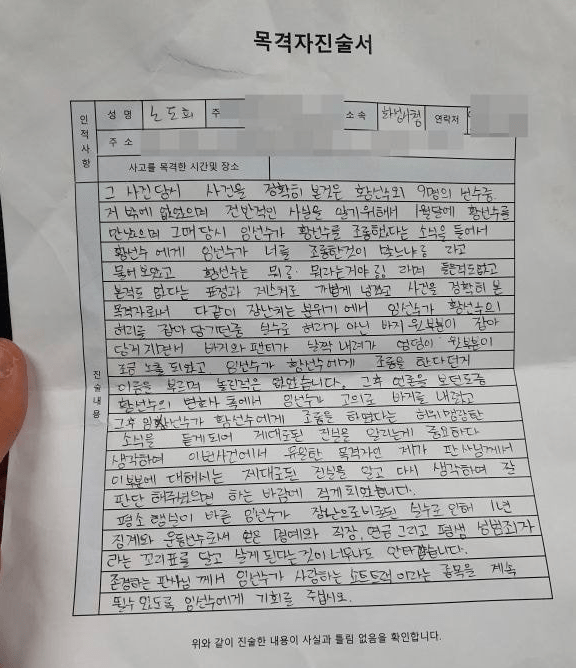 목격자진술서
인적사항
성 명 노도희 주 소속 화성시청 연락처
주 소
사고를 목격한 시간및 장소
진술내용
그 사건당시 사건을 정확히 본것은 황선수외 9명의 선수중
저 밖에 없었으며 전반적인 사실을 알기위해서 1월달에 황선수를
만났으며 그때 당시 임선수가 황선수를 조롱했다는 소식을 들어서
황선수 에게 임선수가 너를 조롱한것이 맞느냐 라고
물어 보았고 황선수는 뭐 뭐라는거야 라며 들은적도없고
본적도 없다는 표정과 제스처로 가볍게 넘겼고 사건을 정확히 본
목격자로서 다같이 장난치는 분위기 에서 임선수가 황선수의
허리를 잡아 당기던중 실수로 허리가 아닌 바지 윗부분이 잡아
당겨 지면서 바지와 팬티가 살짝 내려가 엉덩이 윗부분이
조금 노출 되었고 임선수가 황선수에게 조롱을 한다던지
이름을 부르며 놀린적은 없었습니다. 그후 언론을 보던도중
황선수의 변호사 쪽에서 임선수가 고의로 바지를 내렸고
그후 임선수가 황선수에게 조롱을 하였다는 허위
소식을 듣게되어 제대로된 진실을 알리는게 중요하다
생각하여 이번사건에서 유일한 목격자인 제가 판사님께서
이부분에 대해서는 제대로된 진실을 알고 다시 생각하여 잘
판단 해주셨으면 하는 바람에 적게 되었습니다.
평소 행실이 바른 임선수가 장난으로 비롯된 실수로 인해 1년
징계와 운동선수로서 명예와 직장, 연금 그리고 평생 성범죄자
라는 꼬리표를 달고 살게 된다는것이 너무나도 안타깝습니다.
존경하는 판사님 께서 임선수가 사랑하는 쇼트트랙 이라는 종목을 계속
할수 있도록 임선수에게 기회를 주십시오.
위와 같이 진술한 내용이 사실과 틀림 없음을 확인합니다.